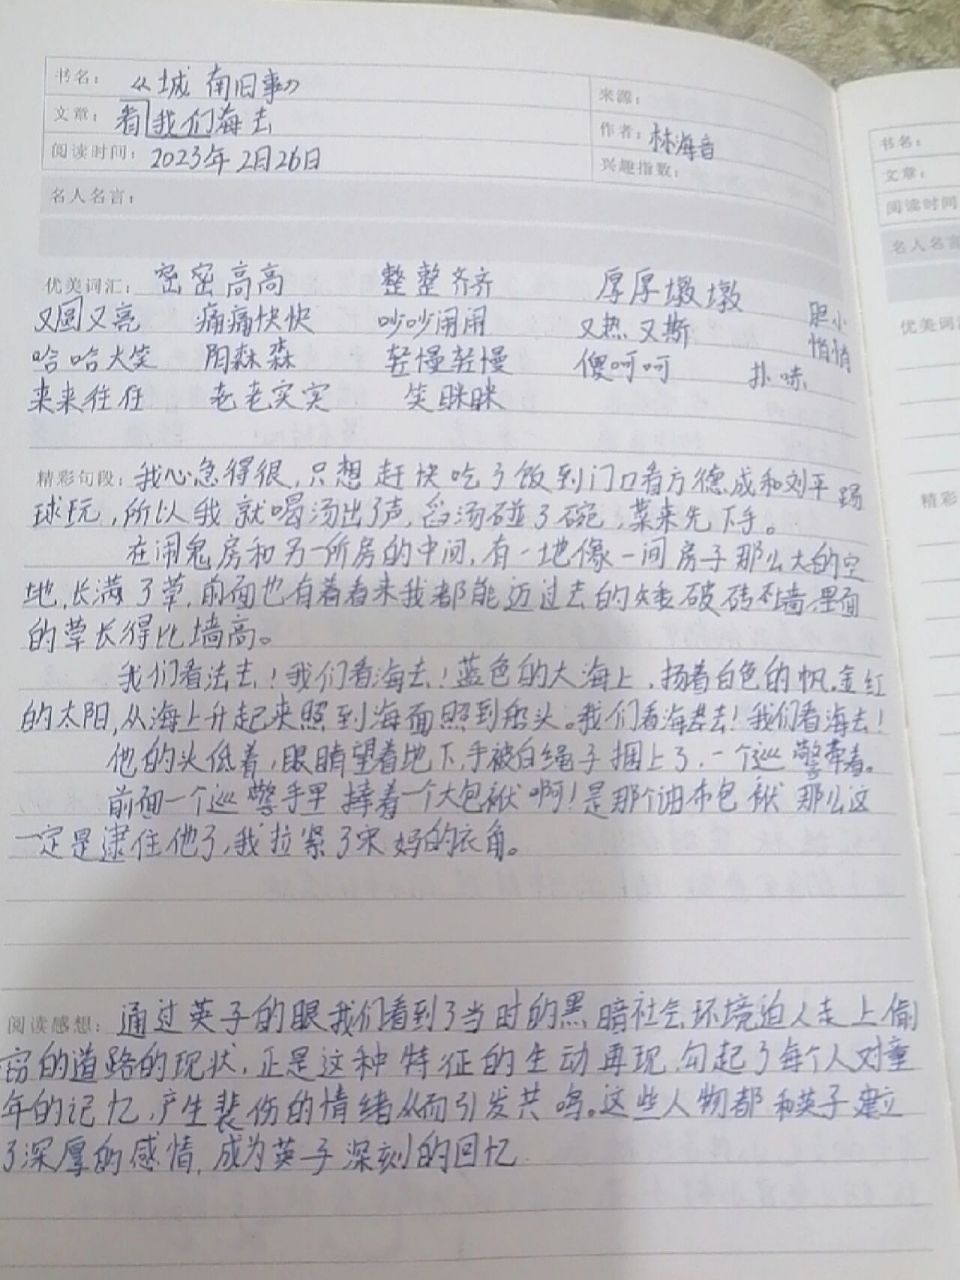 书名：《城南旧事》
来源：
文章：看我们海去
作者：林海音
阅读时间：2023年2月26日
兴趣指数：
名人名言：
优美词汇：密密高高 整整齐齐 厚厚墩墩
又圆又亮 痛痛快快 吵吵闹闹 又热又斯 胆小
哈哈大笑 阴森森 轻慢轻慢 傻呵呵 扑哧 悄悄
来来往往 老老实实 笑眯眯
精彩句段：我心急得很，只想赶快吃了饭到门口看方德成和刘平踢
球玩，所以我就喝汤出了声，舀汤碰了碗，菜来先下手。
在闹鬼房和另一所房的中间，有一地像一间房子那么大的空
地，长满了草，前面也有着看来我都能迈过去的矮破砖墙，里面
的草长得比墙高。
我们看法去！我们看海去！蓝色的大海上，扬着白色的帆，金红
的太阳，从海上升起来照到海面照到船头。我们看海去！我们看海去！
他的头低着，眼睛望着地下，手被白绳子捆上了，一个巡警牵着。
前面一个巡警手里捧着一个大包袱啊！是那个油布包袱那么这
一定是逮住他了，我拉紧了宋妈的衣角。
阅读感想：通过英子的眼我们看到了当时的黑暗社会环境迫人走上偷
窃的道路的现状，正是这种特征的生动再现，勾起了每个人对童
年的记忆，产生悲伤的情绪从而引发共鸣。这些人物都和英子建立
了深厚的感情，成为英子深刻的回忆
书名：
文章：
阅读时间
名人名言
优美词
精彩